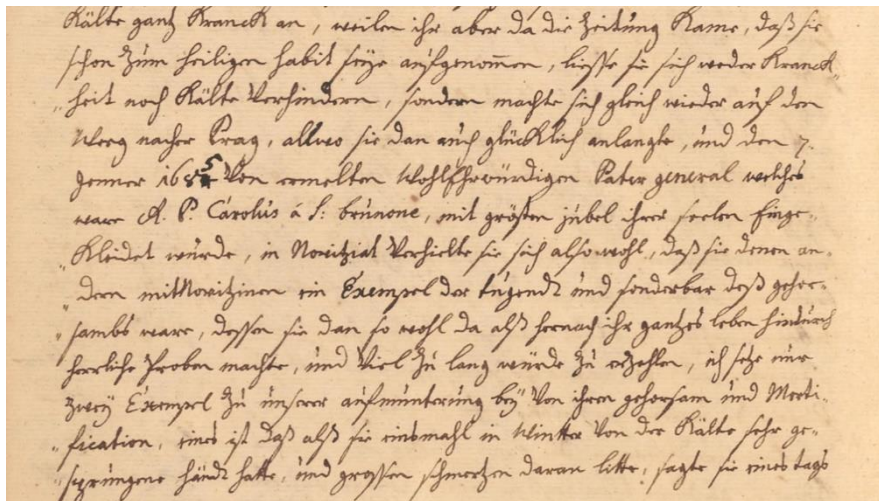 Kälte gantz Kranck an, weilen ihr aber da die Zeitung Kame, daß sie
schon Zum heiligen habit seÿe aufgenommen, liesse sie sich weder Kranck-
heit noch Kälte Verhindern, sondern machte sich gleich wieder auf den
Weeg nacher Prag, allwo sie dan auch glücklich anlangte, und den 7.
Jenner 1685 Von ermelten Wohlehrwürdigen Pater general welches
ware A. P. Carolus á S: brunone, mit grösten jubel ihrer seelen Einge-
Kleidet wurde, in Novitziat Verhielte sie sich also wohl, daß sie denen an-
dern mitNovitzinen ein Exempel der tugendt und sonderbar deß gehor-
sambs ware, dessen sie dan so wohl da alß hernach ihr gantzes leben hindurch
herrliche Proben machte, und Viel Zu lang wurde Zu erzehlen, ich setze nur
Zweÿ Exempel Zu unserer aufmunterung beÿ Von ihren gehorsam und Morti-
fication, eines ist daß alß sie einsmahl in Winter Von der Kälte sehr ge-
sprungene händt hatte, und grossen schmertzen daran litte, sagte sie eines tags